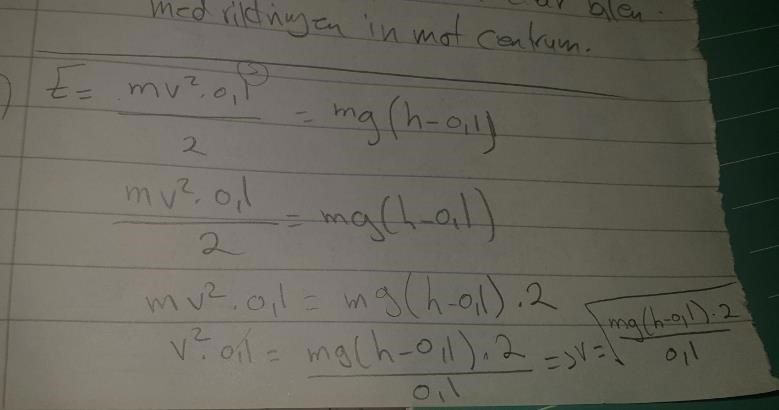 med riktningen in mot centrum.
) E = mv²·0,1² / 2 = mg(h-0,1)
mv²·0,1 / 2 = mg(h-0,1)
mv²·0,1 = mg(h-0,1)·2
v²·0,1 = mg(h-0,1)·2 / 0,1 => v = √(mg(h-0,1)·2 / 0,1)